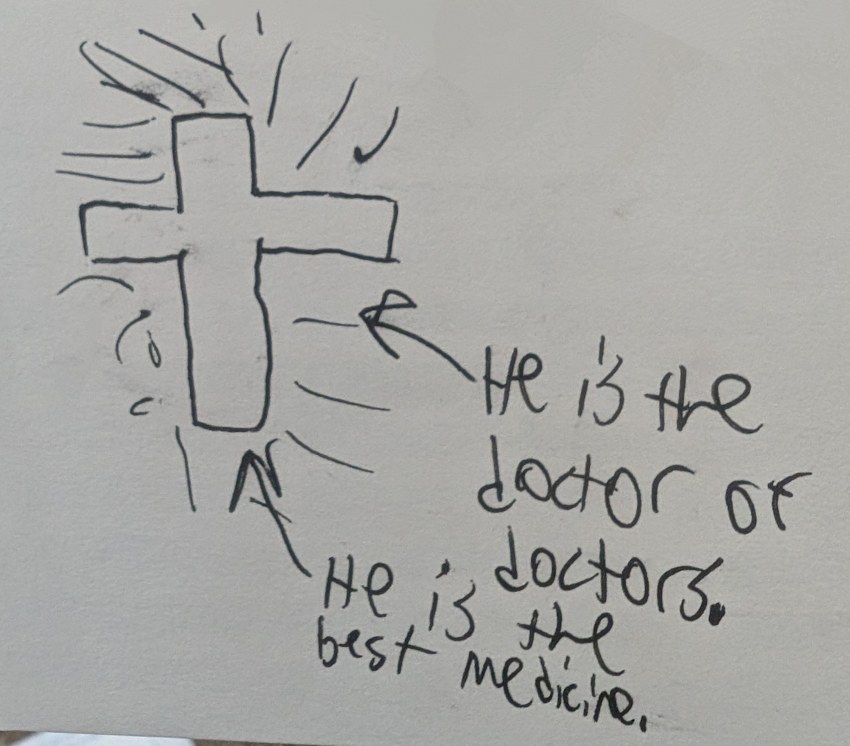 He is the
doctor of
doctors.
He is the
best medicine.